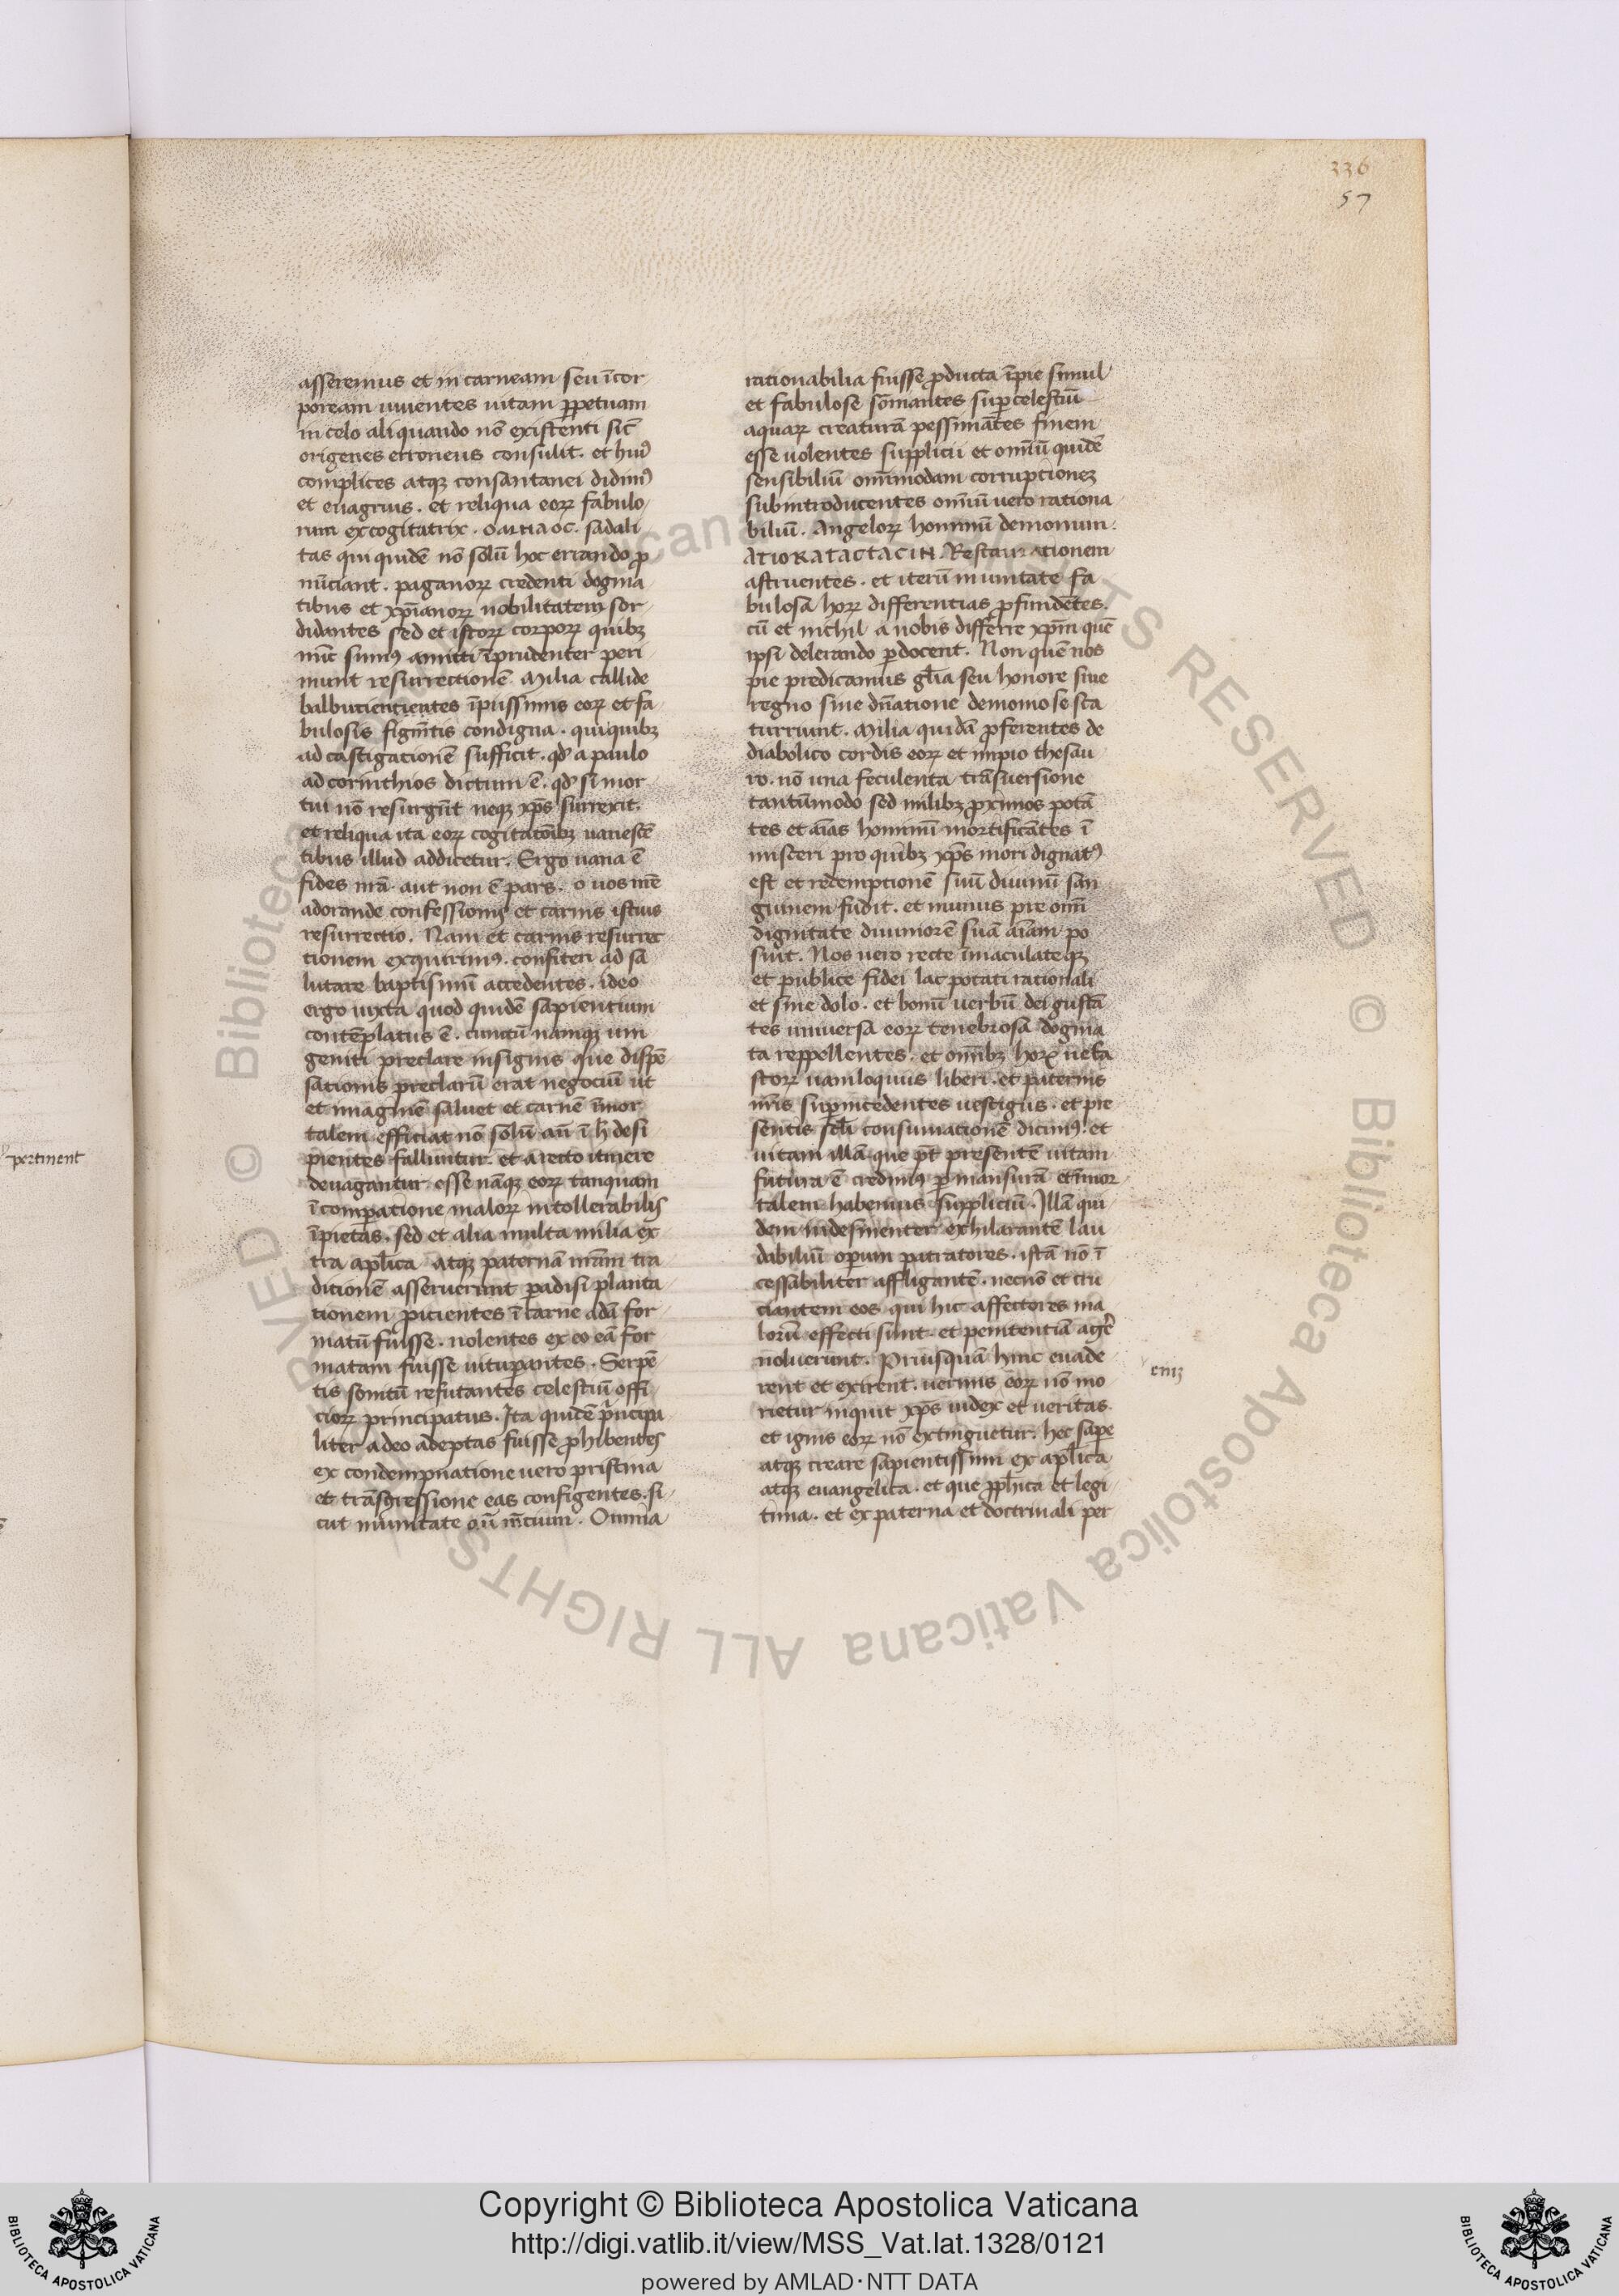 336
57
asseremus et in carneam seu īcor
poream uiuentes uitam ꝑpetuam
in celo aliquando nō existenti sic̄
origenes erroneus consulit. et huiꝰ
complices atqꝫ consantanei didimꝰ
et euagrius. et reliqua eoꝝ fabulo
rum excogitatrix.
tas qui quidē nō solū hoc errando ꝓ
nūciant. paganoꝝ credenti dogma
tibus et xp̄ianoꝝ nobilitatem sor
didantes sed et istoꝝ corpoꝝ quibꝫ
nūc sumꝰ amicti īprudenter peri
munt resurrectionē. Milia callide
balbucientientes īpiissimis eoꝝ et fa
bulosis figm̄tis condigna. qui quibꝫ
ad castigacionē sufficit. qd̓ a paulo
ad corinthios dictum ē. qd̓ si mor
tui nō resurgūt neqꝫ xp̄s surrexit.
et reliqua ita eoꝝ cogitatōibꝫ uanescē
tibus illud addicetur. Ergo uana ē
fides nr̄a. aut non ē pars. o uos inē
adorande confessionis et carnis istius
resurrectio. Nam et carnis resurrec
tionem exquirimꝰ. confiteri ad sa
lutare baptismū accedentes. ideo
ergo iuxta quod quidē sapientium
contēplatus ē. cunctū namqꝫ uni
geniti preclare insignis que dispē
sationis preclarū erat negociū ut
et imaginē saluet et carnē īmor
talem efficiat nō solū aū ī h̄ desi
pientes falluntur. et a recto itinere
deuagantur esse nāqꝫ eoꝝ tanquam
ī comꝑatione maloꝝ intollerabilis
īpietas. sed et alia multa milia ex
tra apl̄ica atqꝫ paternā nr̄am tra
dicionē asseruerunt ꝑadisi planta
tionem ꝓicientes ī carne adā for
matū fuisse. nolentes ex eo eā for
matam fuisse uituꝑantes. Serpē
tis somtū refutantes celestiū offi
cioꝝ principatus. Ita quidē pͥncipa
liter adeo adeptas fuisse ꝓhibentes
ex condempnatione uero pristina
et trāsgressione eas configentes. si
cut in unitate oū m̄cium. Omnia
rationabilia fuisse ꝓducta īpie simul
et fabulose sōniantes suꝑcelestiū
aquaꝝ creaturā pessimātes finem
esse uolentes supplicii et omniū quidē
sensibiliū omnimodam corrupcionez
subintroducentes omniū uero rationa
biliū. Angeloꝝ hominū demonum.
ATIOKATACTACIN. Restaurationem
astruentes. et iterū in unitate fa
bulosā hoꝝ differentias ꝓfundētes.
cū et nichil a nobis differre xp̄m quē
ipsi delerando ꝑdocent. Non quē nos
pie predicamus gl̄ia seu honore siue
regno siue dn̄atione demonio se sta
turriunt. Milia quidā ꝓferentes de
diabolico cordis eoꝝ et impio thesau
ro. nō una feculenta trāsuersione
tantūmodo sed milibꝫ ꝓximos potā
tes et aīas hominū mortificātes ī
misceri pro quibꝫ xp̄s mori dignatꝰ
est et redemptionē suū diuinū san
guinem fudit. et munus pre omī
dignitate diuiniorē suā aīam po
suit. Nos uero recte īmaculateqꝫ
et publice fidei lac potati rationali
et sine dolo. et bonū uerbū dei gustā
tes uniuersa eoꝝ tenebrosa dogma
ta reppellentes. et omībꝫ hoꝝ nefa
stoꝝ uaniloquiis liberi. et paternis
nr̄is suꝑincedentes uestigiis. et pre
sentis sclī consumationē dicimꝰ. et
uitam illā que pᵗ presentē uitam
futura ē credimꝰ ꝑmansurā et īmor
talem habemus suppliciū. Illā qui
dem indesinenter exhilarantē lau
dabiliū oꝑum patratores. istā nō ī
cessabiliter affligantē. necnō et cru
ciantem eos qui hic affectores ma
lorū effecti sunt. et penitentiā agere
noluerunt. Priusquā hinc euade
rent et exirent. uermis eoꝝ nō mo
rietur inquit xp̄s iudex et ueritas.
et ignis eoꝝ nō extinguetur. hec saꝑe
atqꝫ creare sapientissimi ex apl̄ica
atqꝫ euangelica. et que ꝓph̄ica et legi
tima. et ex paterna et doctrinali per
enīꝫ
pertinent
© Biblioteca Apostolica Vaticana ALL RIGHTS RESERVED
Copyright © Biblioteca Apostolica Vaticana
http://digi.vatlib.it/view/MSS_Vat.lat.1328/0121
powered by AMLAD·NTT DATA
BIBLIOTECA APOSTOLICA VATICANA
BIBLIOTECA APOSTOLICA VATICANA